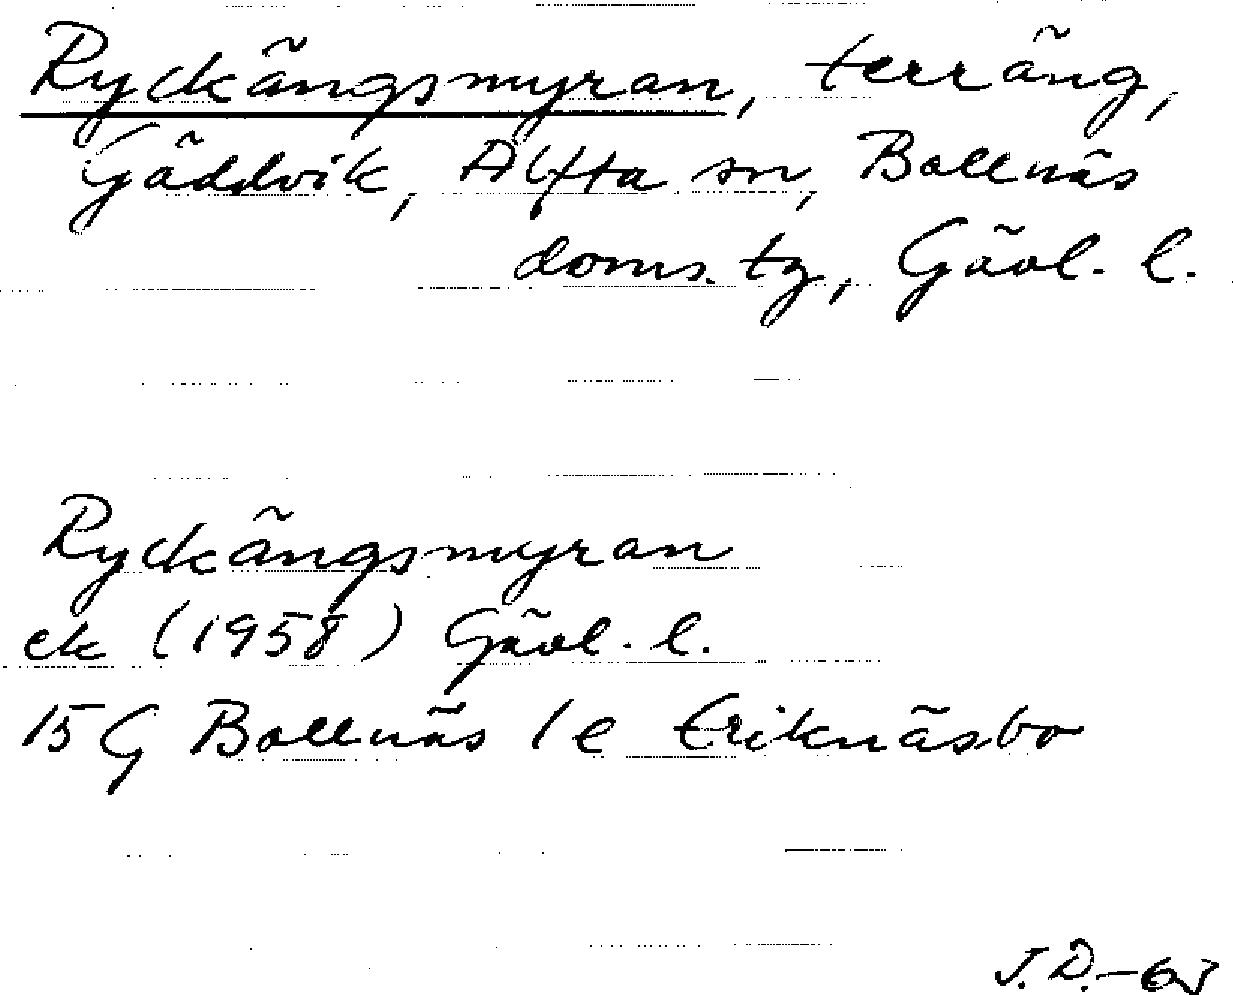 Ryckängsmyran, terräng,
Gäddvik, Alfta sn, Bollnäs
doms. tg, Gävl. l.
Ryckängsmyran
ek (1958) Gävl. l.
15 G Bollnäs 1 e Eriknäsbo
J. D. - 63